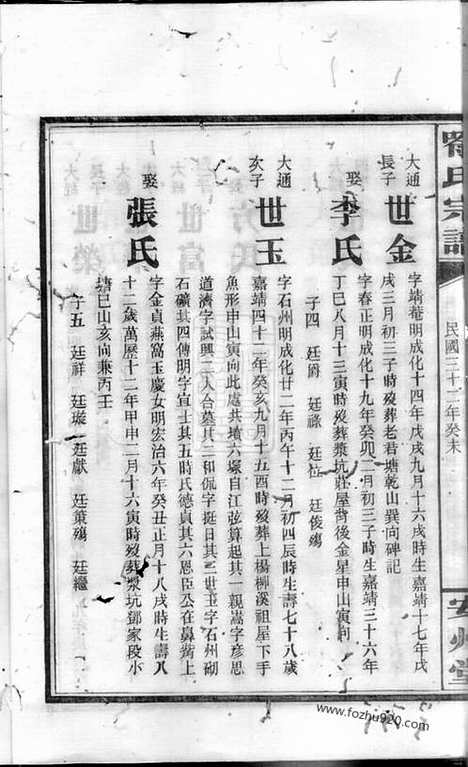 氏宗譜
民國三十二年癸未
安州堂
大通
長子
世金
字靖菴明成化十四年戊戌九月十六戌時生嘉靖十七年戊
戌三月初三子時歿葬老君塘乾山巽向碑記
娶
李氏
字春正明成化十九年癸卯二月初三子時生嘉靖三十六年
丁巳八月十三寅時歿葬漿坑莊屋背後金星申山寅向
子四 廷爵 廷祿 廷位 廷俊殤
大通
次子
世玉
字石州明成化廿二年丙午十二月初四辰時生壽七十八歲
嘉靖四十二年癸亥九月十五酉時歿葬上楊柳溪祖屋下手
魚形申山寅向此處共墳六塚自江弦算起其一親嵩字彥思
道濟字試興二人合墓其二和侃字挺日其三世玉字石州砌
石礦其四傳明字宣士其五時氏德貞其六恩臣公在鼻觜上
娶
張氏
字金貞燕窩玉慶女明宏治六年癸丑正月十八戌時生壽八
十二歲萬歷十二年甲申二月十六寅時歿葬漿坑鄧家段小
塘巳山亥向兼丙壬
子五 廷祥 廷璇 廷獻 廷策殤 廷繼
www.fozhu920.com